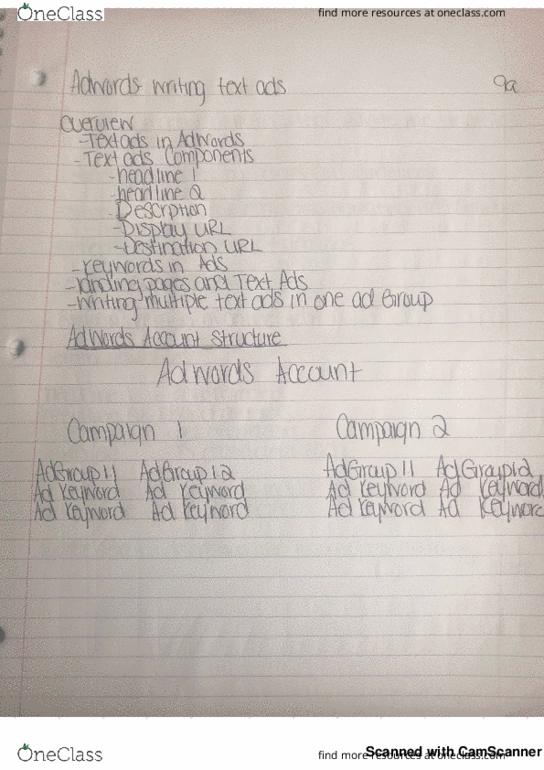 OneClass
find more resources at oneclass.com
Adwords writing text ads 9a
overview
-Text ads in AdWords
-Text ads Components
-headline 1
-headline 2
-Descrption
-Display URL
-Destination URL
-Keywords in Ads
-landing pages and Text Ads
-writing multiple text ads in one ad Group
AdWords Account Structure
Adwords Account
Campaign 1 Campaign 2
AdGroup 11 AdGroup 12 AdGroup 11 AdGroup 12
Ad Keyword Ad Keyword Ad Keyword Ad Keyword
Ad Keyword Ad Keyword Ad Keyword Ad Keywor
OneClass
find more resources at oneclass.com
Scanned with CamScanner